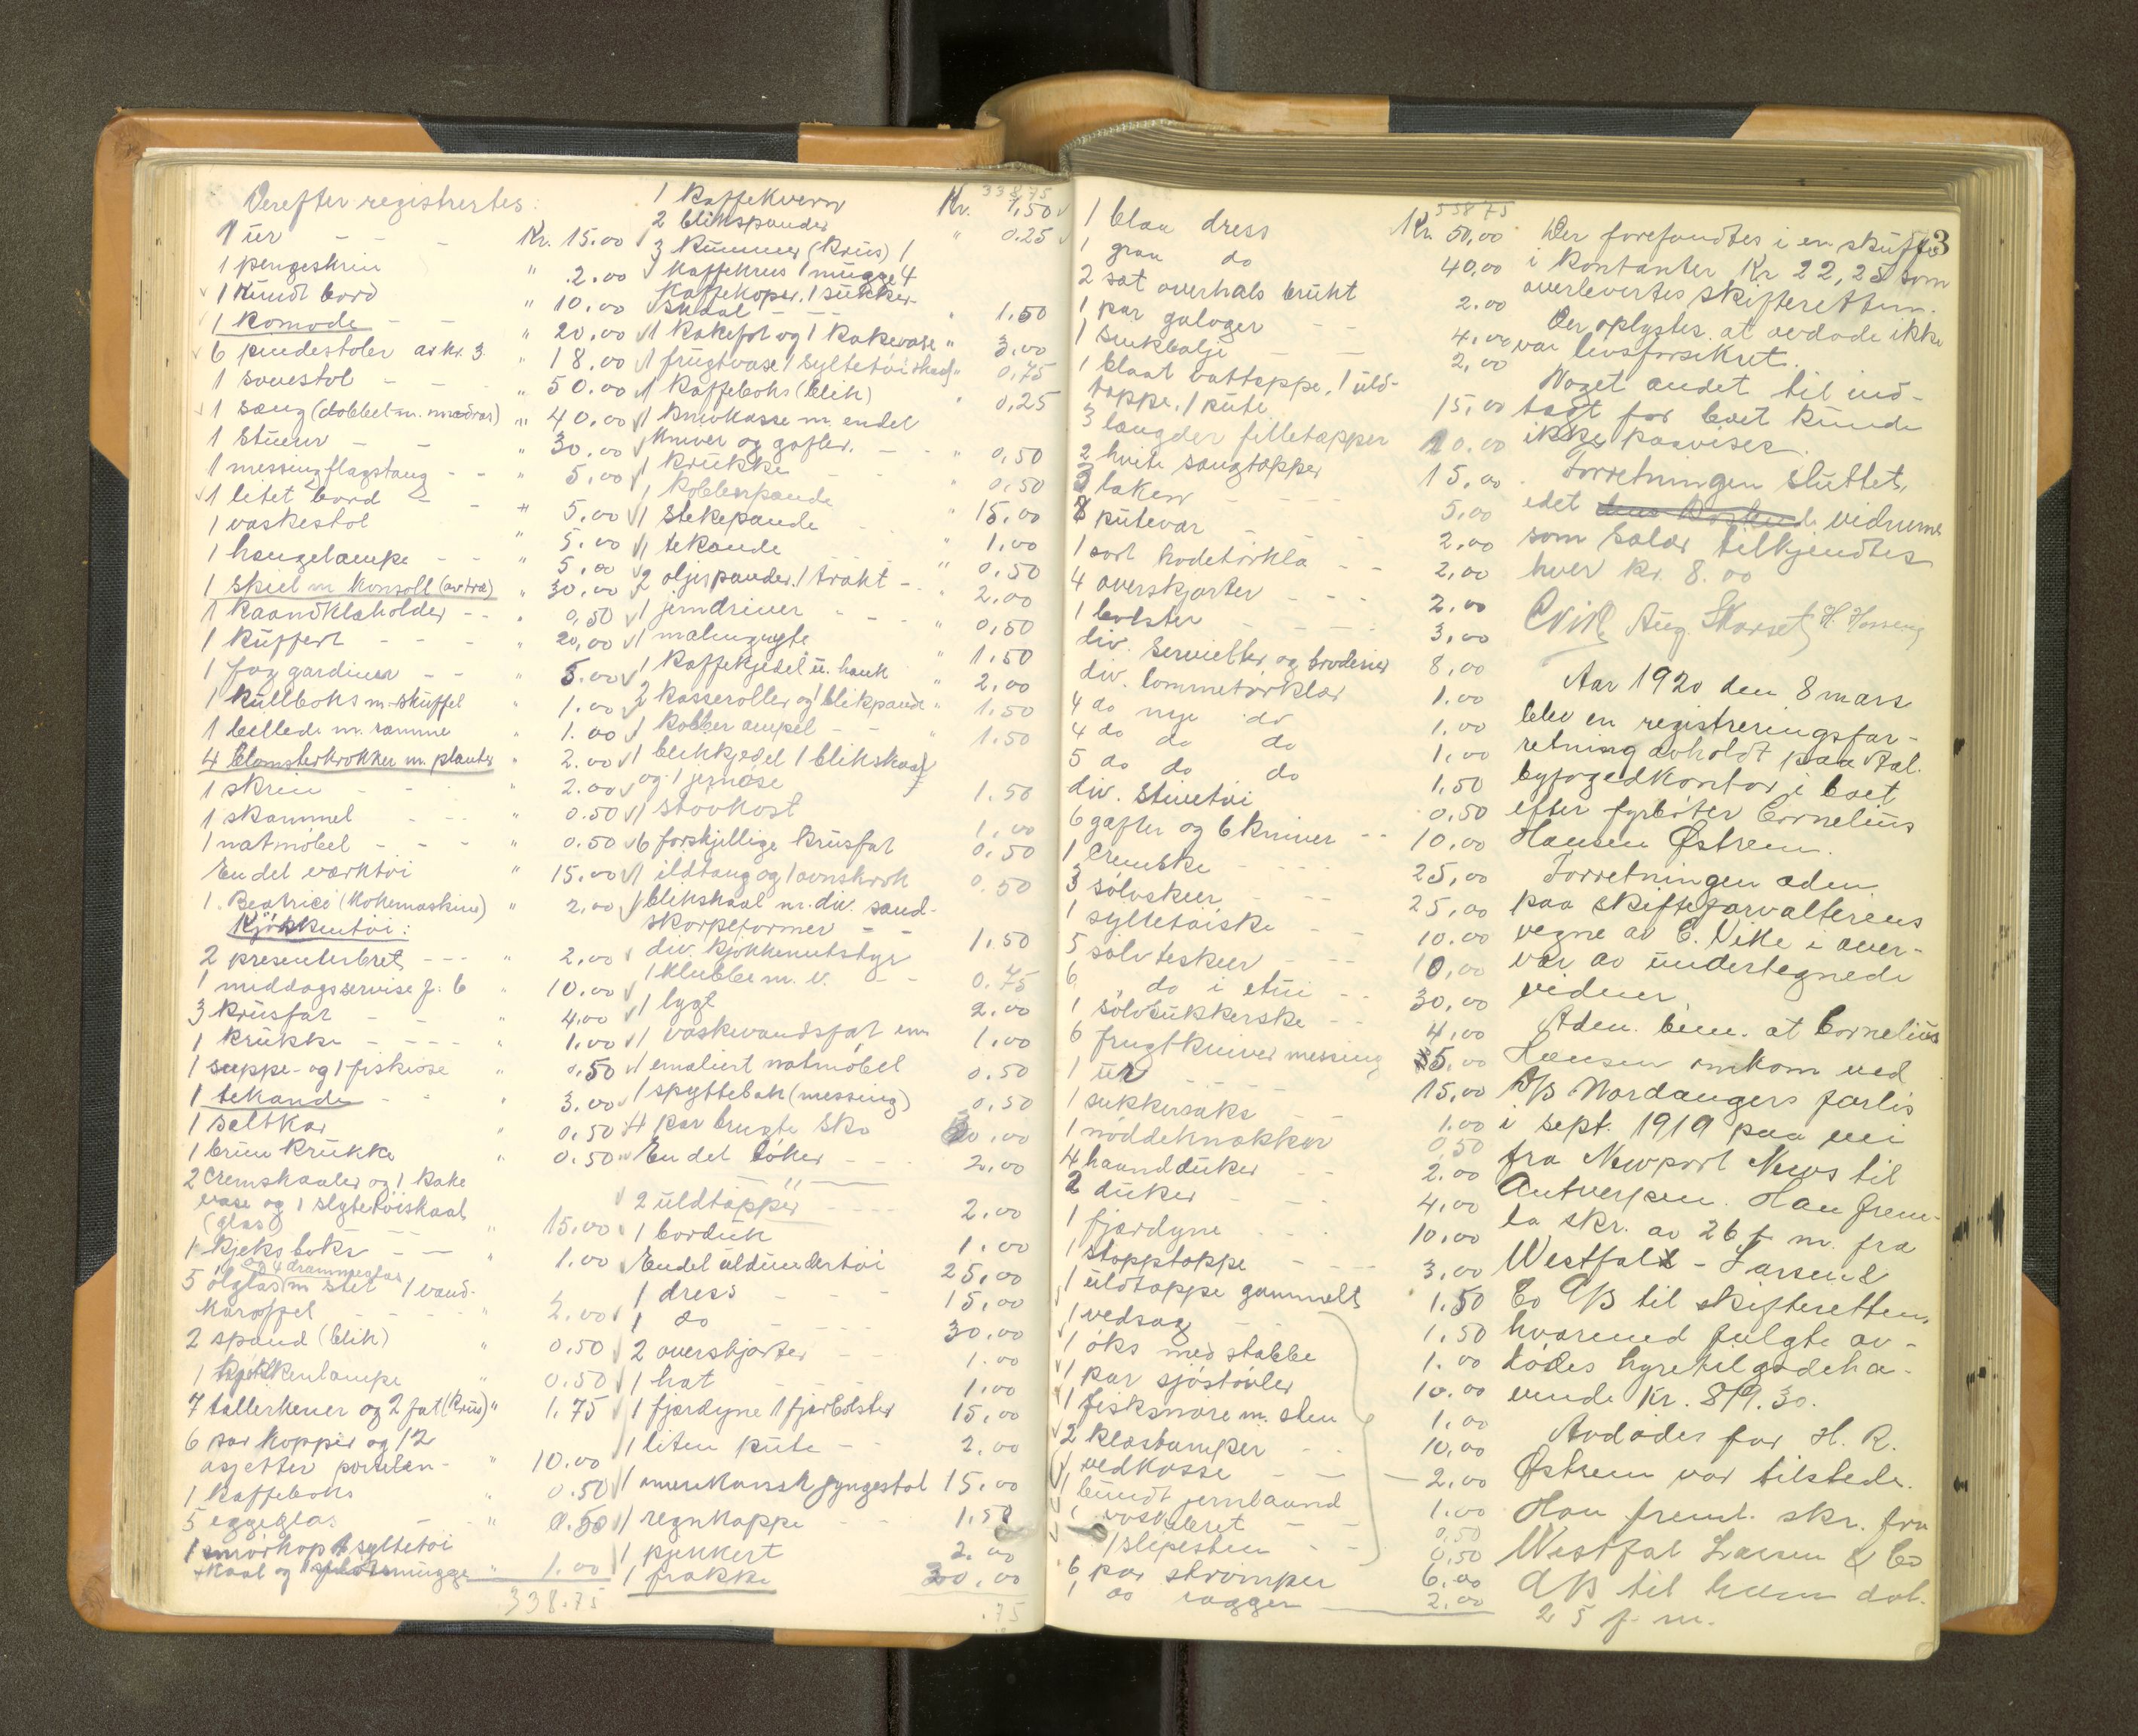 Derefter registrertes:
1 ur - - - Kr. 15.00
1 pengeskrin " 2.00
1 rundt bord " 10.00
1 komode - - " 20.00
6 pindestoler av kr. 3. " 18.00
1 sovestol - - - " 50.00
1 sæng (dobbel m. madras) " 40.00
1 stuur - - " 30.00
1 messingflagstang - - " 5.00
1 litet bord - - " 5.00
1 vaskestol " 5.00
1 hængelampe - - " 5.00
1 speil m konsoll (av træ) " 30.00
1 haandklæholder - - " 0,50
1 kuffert - - - " 20,00
1 fag gardiner - - " 5.00
1 kullboks m. skuffel " 1.00
1 billede m. ramme " 1.00
4 blomsterkrukker m. planter " 2.00
1 skrin - - - " 2.00
1 skammel - - - " 0.50
1 natmøbel - - - " 0.50
En del værktøi " 15.00
1 Beatrice (kokemaskine) " 2,00
Kjøkkentøi:
2 presenterbret - - - " 2,00
1 middagsservise f. 6 " 10.00
3 krusfat - - " 4,00
1 krukke - - - - " 1.00
1 suppe- og 1 fiskeøse " 0.50
1 tekande - - " 3.00
1 saltkar " 0,50
1 brun krukke " 0.50
2 cremskaaler og 1 kake
vase og 1 syltetøiskaal
(glas) " 15.00
1 kjeksboks - - " 1.00
og 4 dramme glas
5 ølglas m stet 1 vand-
karaffel - - - - " 2.00
2 spand (blik) " 0,50
1 kjøkkenlampe " 0.50
7 tallerkener og 2 fat (krus) " 1.75
6 par kopper og 12
asjetter porselen - " 10.00
1 kaffeboks " 0.50
5 eggeglas - - " 0.50
1 smørkop 1 syltetøi
skaal og 1 fløtemugge " 1.00
338.75
338.75
1 kaffekvern Kr. 1,50
2 blikspander " 0.25
3 kummer (krus) 1
kaffekrus 1 mugge 4
kaffekoper, 1 sukker-
skaal - - - " 1.50
1 kakefat og 1 kakevase " 3,00
1 frugtvase 1 syltetøiskaal " 0,75
1 kaffeboks (blik) " 0,25
1 knivkasse m. endel
kniver og gafler. - - " 0,50
1 krukke " 0,50
1 kobberpande " 15,00
1 stekepande - " 1.00
1 tekande - - - " 0,50
2 oljespander. 1 trakt - " 2.00
1 jerndriver - - " 0,50
1 malingrygte " 1.50
1 kaffekjedel u. hank " 2,00
2 kasseroller og 1 blikpande " 1.50
1 kobber ampel - - " 1.50
1 blikkjedel 1 blikskaal
og 1 jernøse 1.50
1 støvkost 1,00
6 forskjellige krusfat 0.50
1 ildtang og 1 ovnskrok 0.50
1 blikskaal m. div. sand-
skorpeformer - - 1.50
div. kjøkkenutstyr
1 klubbe m. v. - - 0.75
1 lygt 2.00
1 vaskevandsfat em 1.00
1 emaliert natmøbel 0.50
1 spyttebak (messing) 0.50
4 par brugte sko 30.00
En del bøker - - 2,00
2 uldtæpper - - - - 2.00
1 bordduk 1.00
Endel uldundertøi 25,00
1 dress - - - 15,00
1 do - - - - 30.00
2 overskjorter - - 1.00
1 hat 1,00
1 fjærdyne 1 fjærbolster 15,00
1 liten pute - - 2,00
1 amerikansk gyngestol 15.00
1 regnkappe - - 1.50
1 pjekkert 2.00
1 frakke 30,00
.75
338 75
1 blaa dress Kr. 50,00
1 graa do 40,00
2 sæt overhals brukt 2.00
1 par galoger - - 4,00
1 sinkbalje - - 2,00
1 blaat vattæppe, 1 uld-
tæppe, 1 pute 15,00
3 længder filletæpper 10.00
2 hvite sængtæpper 15,00
3 laken - - - - 5,00
8 putevar - 2,00
1 sort hodetørklæ - - 2,00
4 overskjorter - - - 2.00
1 bolster - - - - 3,00
div. servietter og broderier 8,00
div. lommetørklær 1.00
4 do nye do 1,00
4 do do do 1,00
5 do do do 1,50
div. stuetøi 0,50
6 gafler og 6 kniver - - 10,00
1 cremske - - - 25,00
3 sølvskeer - - - 25,00
1 syltetøiske - - 10.00
5 sølvteskeer - - - 10,00
6 " do i etui - - 30,00
1 sølvsukkerske - - 4,00
6 frugtkniver messing 35,00
1 ur - - - - 15,00
1 sukkersaks - - 1.00
1 nøddeknækker 0,50
4 haandduker - - 2.00
2 duker - - - 4,00
1 fjærdyne - - - 10.00
1 stopptæppe - - - - 3,00
1 uldtæppe gammelt 1.50
1 vedsag - - 1.50
1 øks med stabbe 1.00
1 par sjøstøvler 10.00
1 fisksnøre m. sten 1,00
2 klæstamper - - 10,00
1 vedkasse - - - 2,00
1 bundt jernbaand 1.00
1 vaskebret - - 0,50
1 slipesten - - 0,50
6 par strømper 6,00
1 do ragger 2,00
3
Der forefandtes i en skuffe
i kontanter Kr 22,25 som
overlevertes skifteretten.
Der oplystes at avdøde ikke
var livsforsikret.
Noget andet til ind-
tægt for boet kunde
ikke paavises.
Forretningen sluttet,
idet vidnerne
som salær tilkjendtes
hver kr. 8.00
E Vik Aug. Skorset H. Hosseng
Aar 1920 den 8 mars
blev en registreringsfor-
retning avholdt paa Aal.
byfogedkontor i boet
efter fyrbøter Cornelius
Hansen Østrem.
Forretningen adm.
paa skifteforvalterens
vegne av E. Vike i over-
vær av undertegnede
vidner.
Adm. bem. at Cornelius
Hansen omkom ved
D/S Nordangers forlis
i sept. 1919 paa vei
fra Newport News til
Antwerpen. Han frem-
la skr. av 26 f. m. fra
Westfal - Larsen &
Co A/S til skifteretten,
hvormed fulgte av-
dødes hyretilgodeha-
vende Kr. 819.30.
Avdødes far H. R.
Østrem var tilstede.
Han freml. skr. fra
Westfal Larsen & Co
A/S til ham dat.
25 f. m.